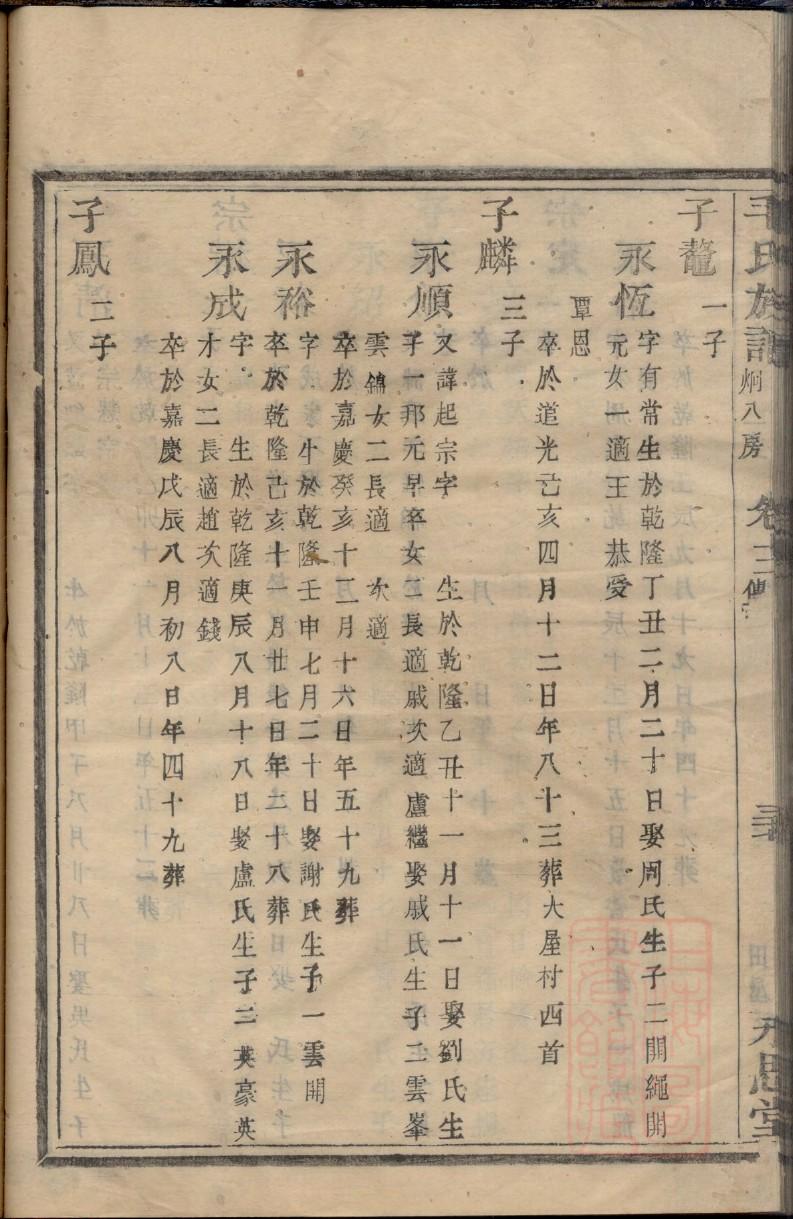 毛氏族譜 炯八房 卷十二 傳 永思堂
子鼇 一子
永恆 字有常生於乾隆丁丑二月二十日娶周氏生子二開繩開
元女一適王 恭愛
覃恩
卒於道光己亥四月十二日年八十三葬大屋村西首
子麟 三子
永順 又諱起宗字 生於乾隆乙丑十一月十一日娶劉氏生
子一邦元早卒女二長適戚次適盧繼娶戚氏生子二雲峯
雲錦女二長適 次適
卒於嘉慶癸亥十二月十六日年五十九葬
永裕 字 生於乾隆壬申七月二十日娶謝氏生子一雲開
卒於乾隆己亥十一月廿七日年二十八葬
永成 字 生於乾隆庚辰八月十八日娶盧氏生子二英豪英
才女二長適趙次適錢
卒於嘉慶戊辰八月初八日年四十九葬
子鳳 二子